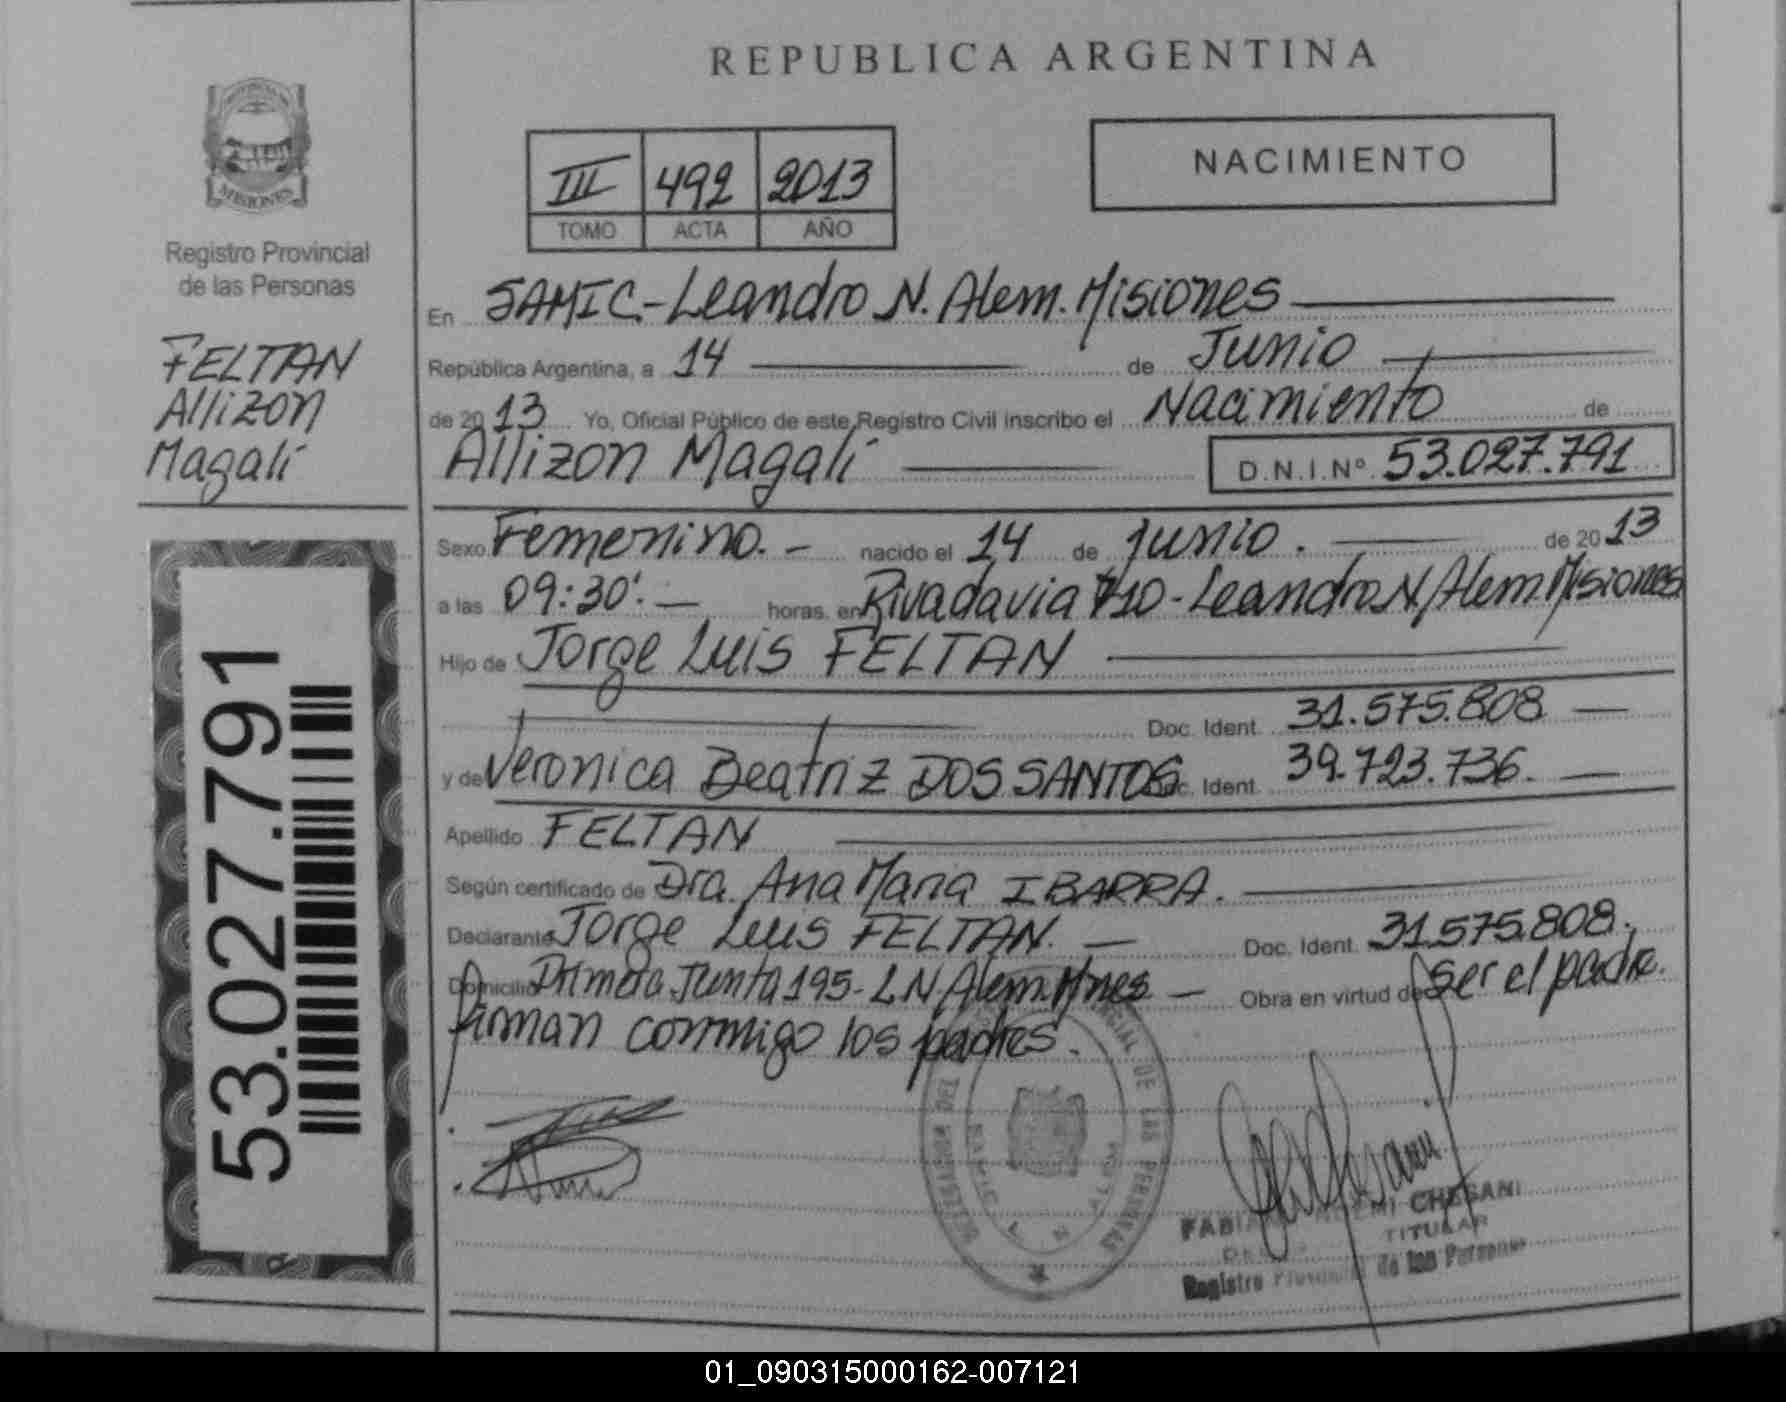 REPUBLICA ARGENTINA
PROVINCIA DE
MISIONES
Registro Provincial
de las Personas
FELTAN
Allizon
Magalí
53.027.791
III 492 2013
TOMO ACTA AÑO
NACIMIENTO
En SAMIC.-Leandro N. Alem. Misiones
República Argentina, a 14 de Junio
de 2013 Yo, Oficial Público de este Registro Civil inscribo el Nacimiento de
Allizon Magalí D.N.I.Nº 53.027.791
Sexo Femenino.- nacido el 14 de junio. de 2013
a las 09:30'.- horas, en Rivadavia 710-Leandro N. Alem. Misiones
Hijo de Jorge Luis FELTAN
Doc. Ident. 31.575.808
y de Veronica Beatriz DOS SANTOS Doc. Ident. 39.723.736.
Apellido FELTAN
Según certificado de Dra. Ana Maria IBARRA.
Declarante Jorge Luis FELTAN. Doc. Ident. 31.575.808.
Domicilio Primera Junta 195-LN Alem. Mnes Obra en virtud de Ser el padre.
firman conmigo los padres.
PROVINCIAL DE LAS PERSONAS
SAMIC
L N
CHESANI
TITULAR
Registro Provincial de las Personas
01_090315000162-007121